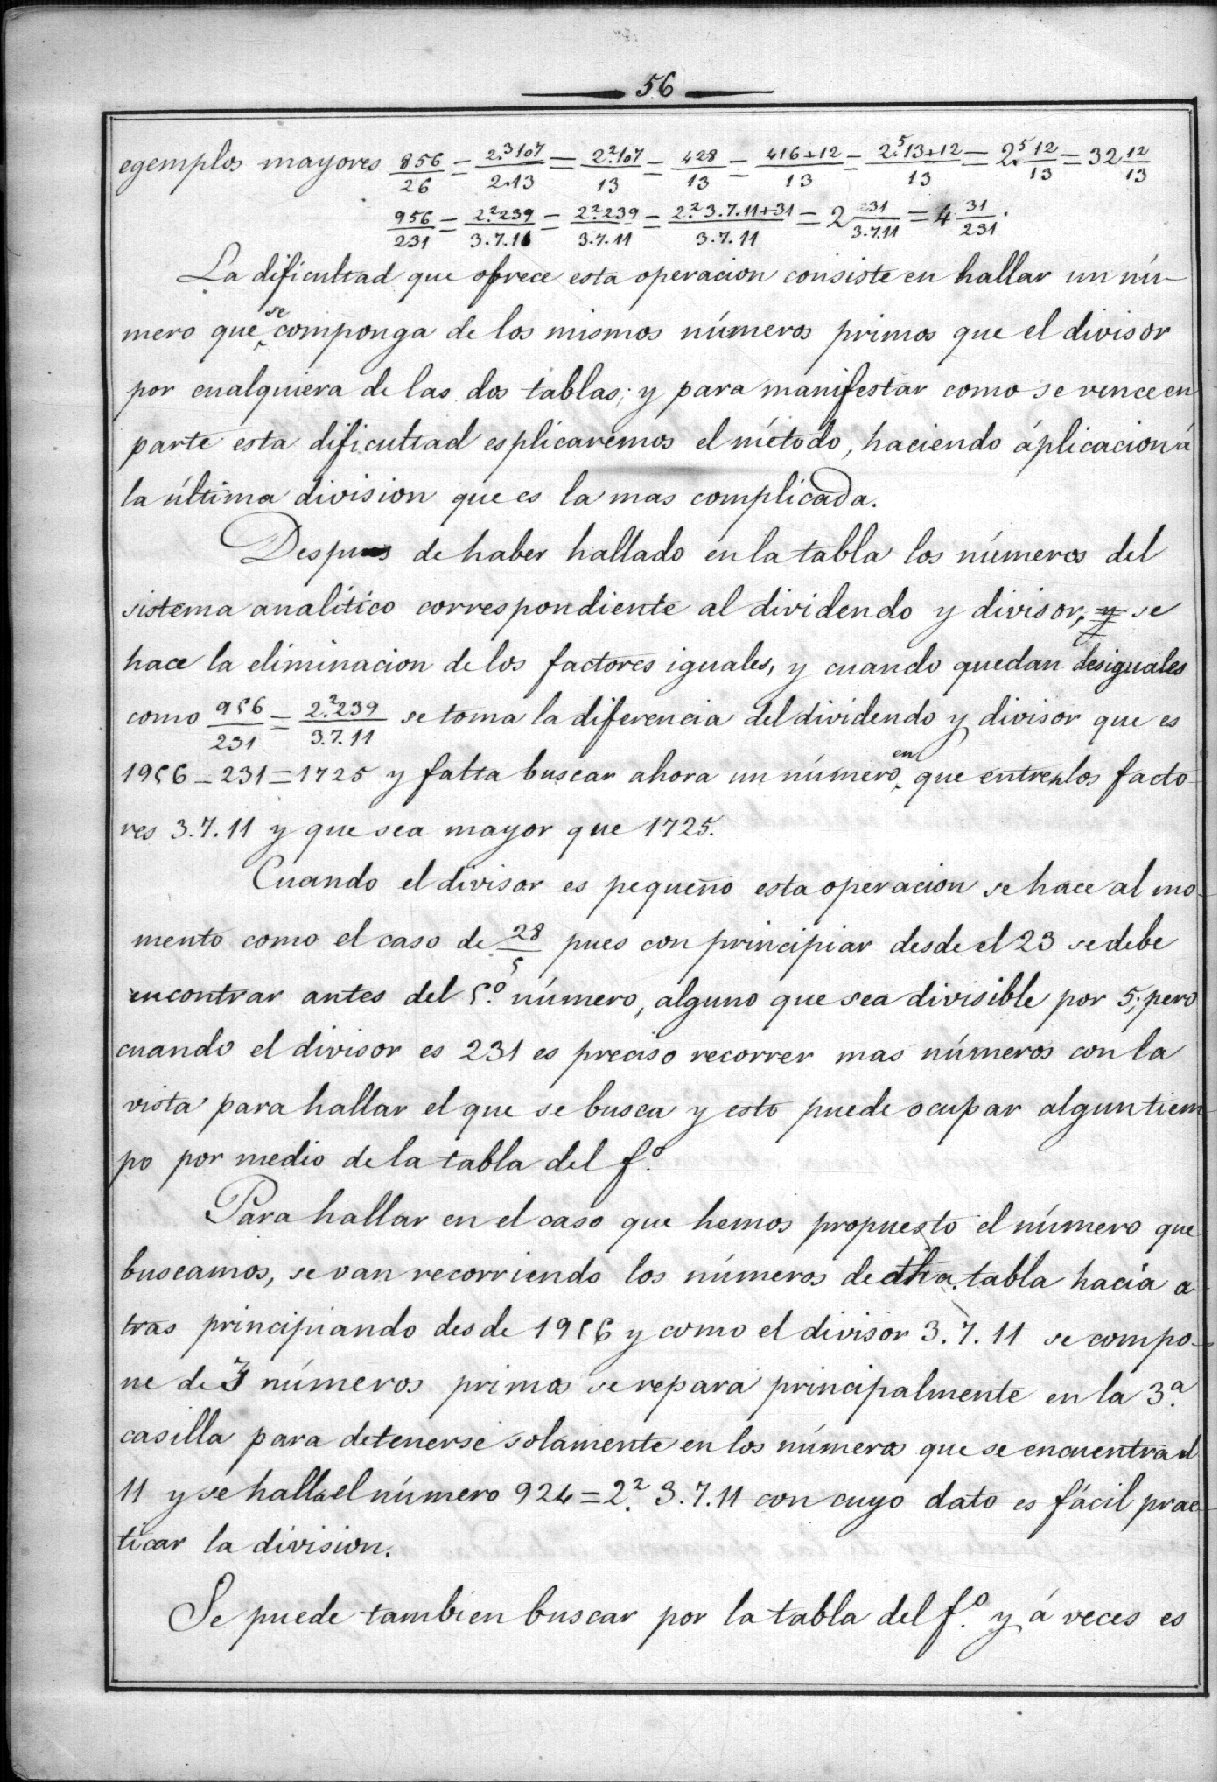 56
egemplos mayores 856/26 = 2.³107/2.13 = 2.²107/13 = 428/13 = 416+12/13 = 2.⁵13+12/13 = 2.⁵ 12/13 = 32 12/13
956/231 = 2.²239/3.7.11 = 2.²239/3.7.11 = 2.²3.7.11+31/3.7.11 = 2² 31/3.7.11 = 4 31/231.
La dificultad que ofrece esta operacion consiste en hallar un nú-
mero que se componga de los mismos números primos que el divisor
por cualquiera de las dos tablas; y para manifestar como se vence en
parte esta dificultad esplicaremos el método, haciendo áplicacion á
la última division que es la mas complicada.
Despues de haber hallado en la tabla los números del
sistema analítico correspondiente al dividendo y divisor, y se
hace la eliminacion de los factores iguales, y cuando quedan desiguales
como 956/231 = 2.²239/3.7.11 se toma la diferencia del dividendo y divisor que es
1956-231=1725 y falta buscar ahora un número en que entren los facto-
res 3.7.11 y que sea mayor que 1725.
Cuando el divisor es pequeño esta operacion se hace al mo-
mento como el caso de 28/5 pues con principiar desde el 23 se debe
encontrar antes del 5.º número, alguno que sea divisible por 5; pero
cuando el divisor es 231 es preciso recorrer mas números con la
vista para hallar el que se busca y esto puede ocupar algun tiem-
po por medio de la tabla del f.º
Para hallar en el caso que hemos propuesto el número que
buscamos, se van recorriendo los números de dha. tabla hacia a
tras principiando desde 1956 y como el divisor 3.7.11 se compo-
ne de 3 números primos se repara principalmente en la 3.ª
casilla para detenerse solamente en los números que se encuentra el
11 y se halla el número 924=2.² 3.7.11 con cuyo dato es fácil prac-
ticar la division.
Se puede tambien buscar por la tabla del f.º y á veces es